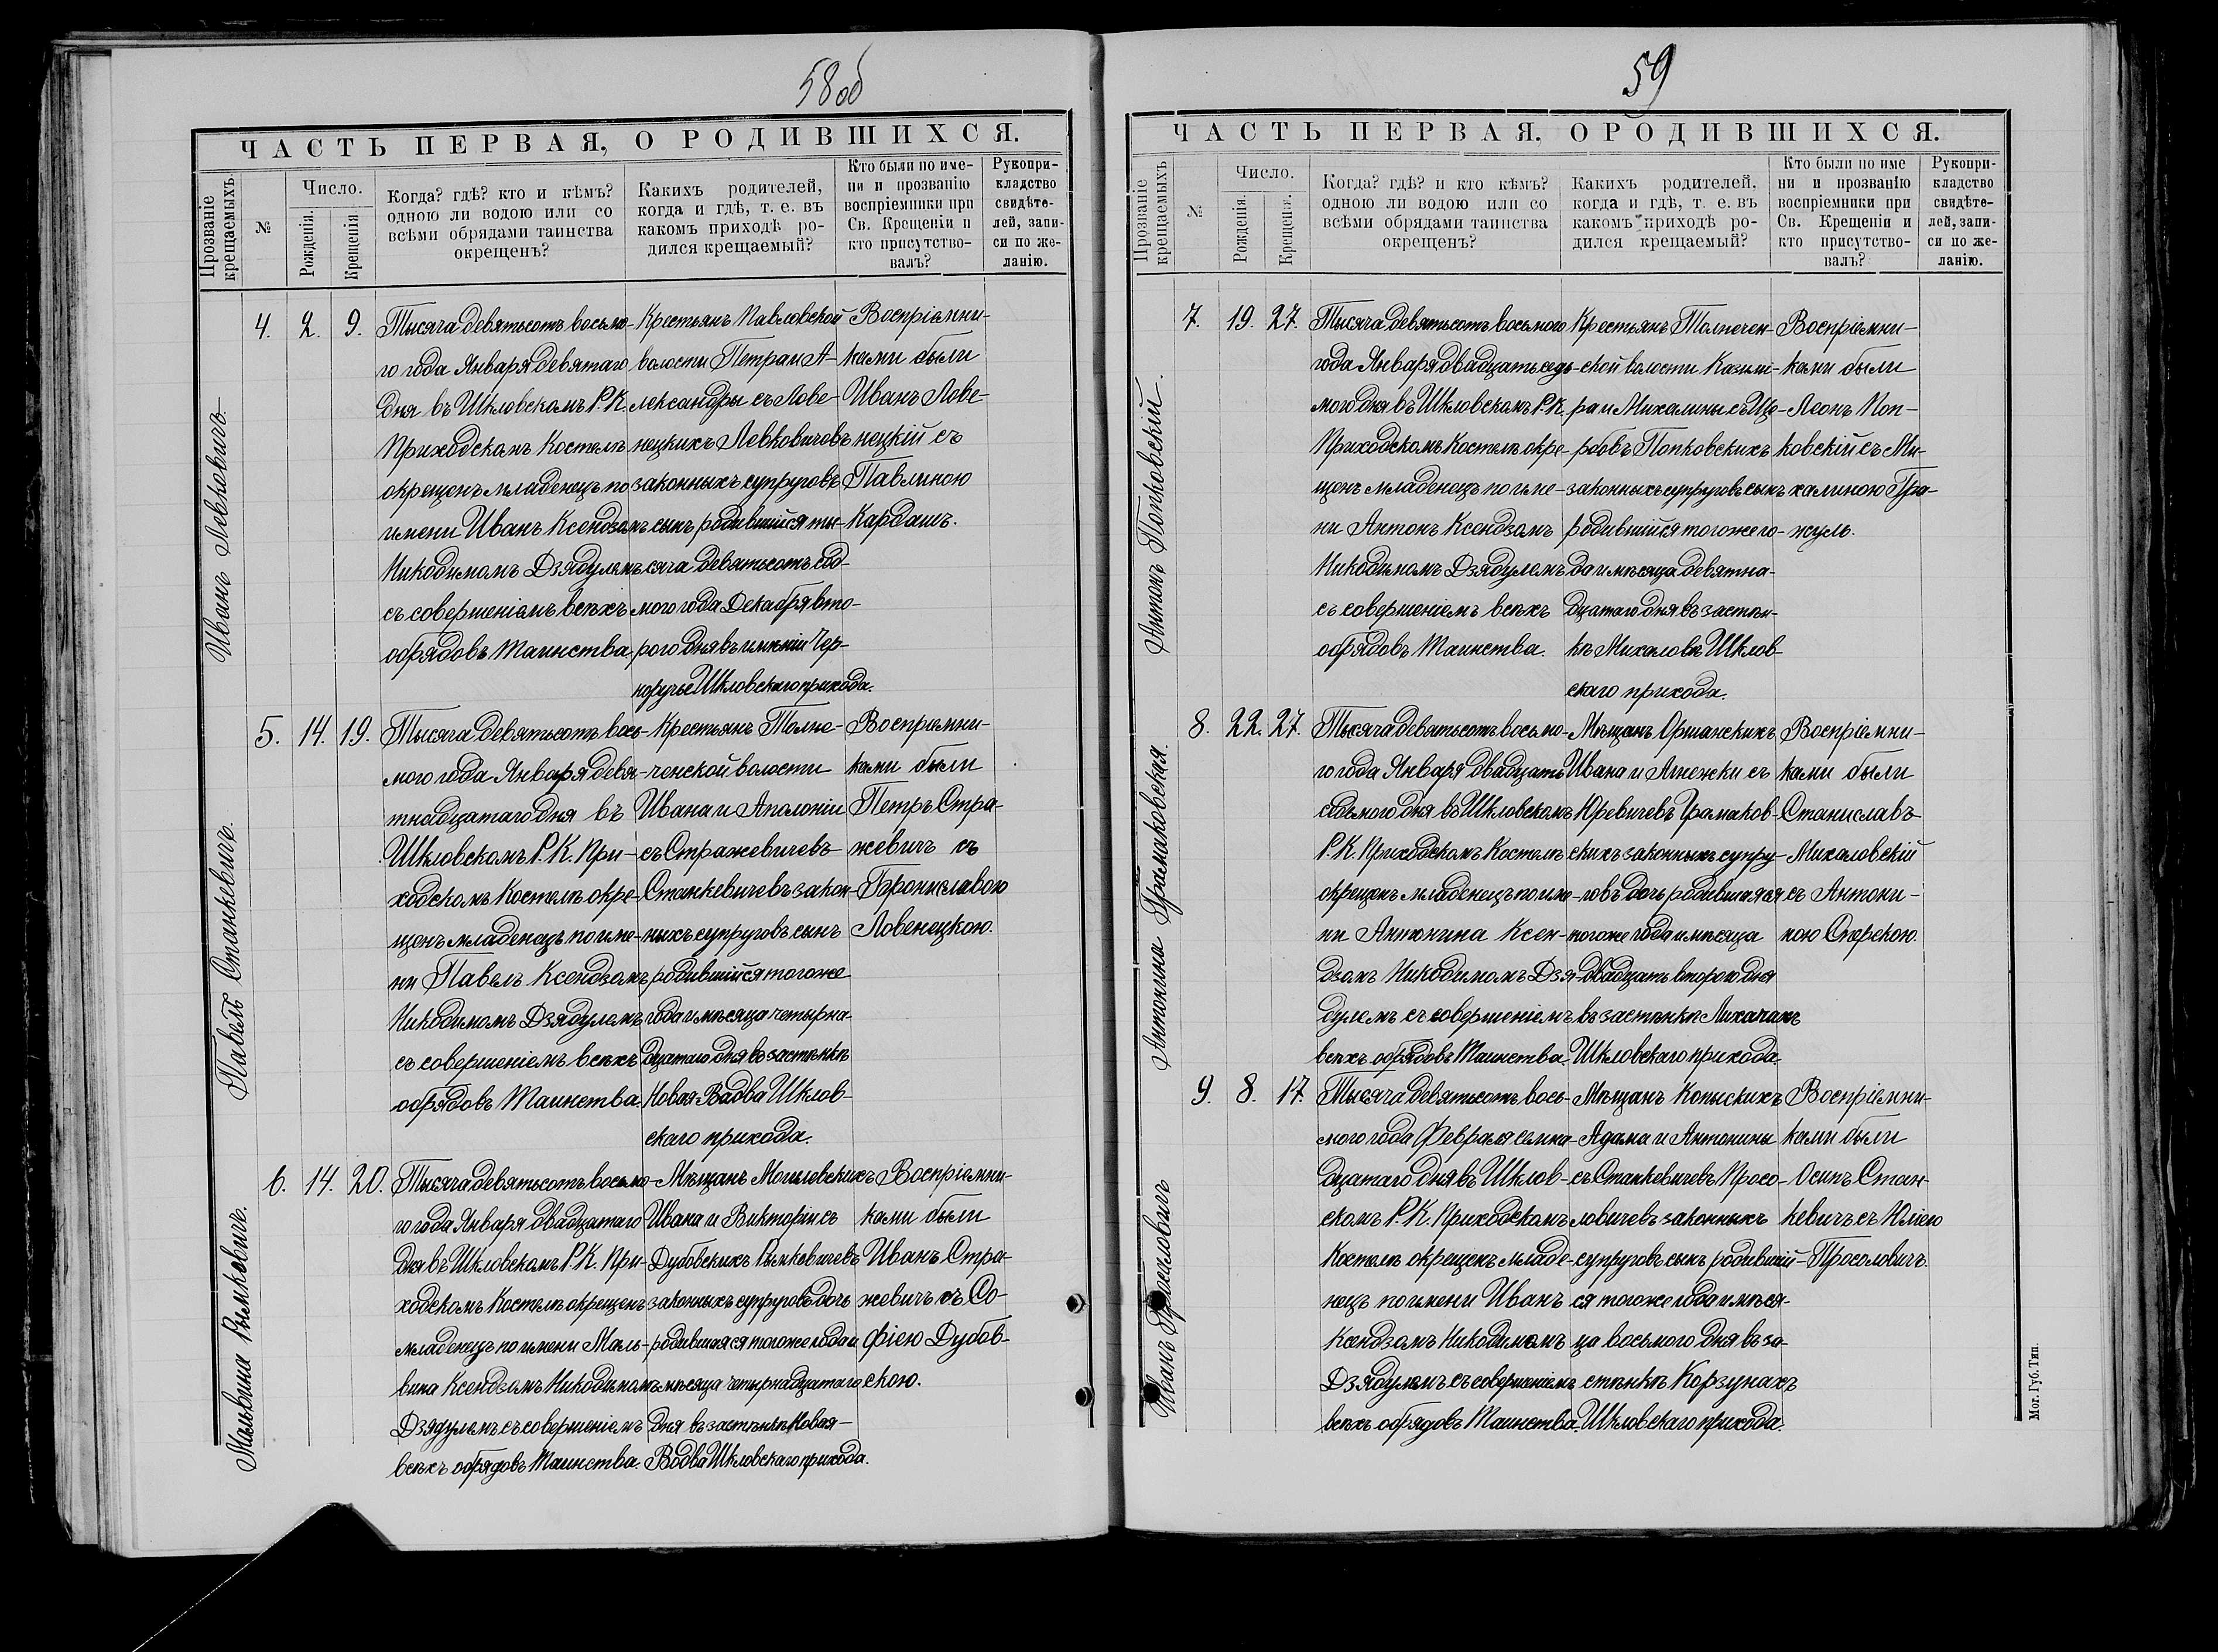 58 об
ЧАСТЬ ПЕРВАЯ, О РОДИВШИХСЯ.
Прозваніе крещаемыхъ.
№
Число.
Рожденія.
Крещенія
Когда? гдѣ? кто и кѣмъ?
одною ли водою или со
всѣми обрядами таинства
окрещенъ?
Какихъ родителей,
когда и гдѣ, т. е. въ
какомъ приходѣ ро-
дился крещаемый?
Кто были по име-
ни и прозванію
воспріемники при
Св. Крещеніи и
кто присутство-
валъ?
Рукопри-
кладство
свидѣте-
лей, запи-
си по же-
ланію.
Иванъ Левковичъ
4. 2. 9.
Тысяча девятьсотъ восьмо-
го года Января девятаго
дня въ Шкловскомъ Р. К.
Приходскомъ Костелѣ
окрещенъ младенецъ по
имени Иванъ Ксендзомъ
Никодимомъ Дзядулемъ
съ совершеніемъ всѣхъ
обрядовъ Таинства.
Крестьянъ Павловской
волости Петра и А-
лександры съ Лове-
нецкихъ Левковичевъ
законныхъ супруговъ
сынъ родившійся ты-
сяча девятьсотъ седь-
мого года Декабря вто-
рого дня въ имѣніи Чер-
норучье Шкловскаго прихода.
Воспріемни-
ками были
Иванъ Лове-
нецкій съ
Павлиною
Кардашъ.
Павелъ Станкевичъ.
5. 14. 19.
Тысяча девятьсотъ вось-
мого года Января девя-
тнадцатаго дня въ
Шкловскомъ Р. К. При-
ходскомъ Костелѣ окре-
щенъ младенецъ по име-
ни Павелъ Ксендзомъ
Никодимомъ Дзядулемъ
съ совершеніемъ всѣхъ
обрядовъ Таинства.
Крестьянъ Толпе-
ченской волости
Ивана и Аполоніи
съ Стражевичевъ
Станкевичевъ закон-
ныхъ супруговъ сынъ
родившійся того же
года и мѣсяца четырна-
дцатаго дня въ застѣнкѣ
Новая Вадва Шклов-
скаго прихода.
Воспріемни-
ками были
Петръ Стра-
жевичъ съ
Брониславою
Ловенецкою.
Мальвина Рымкевичъ.
6. 14. 20.
Тысяча девятьсотъ восьмо-
го года Января двадцатаго
дня въ Шкловскомъ Р. К. При-
ходскомъ Костелѣ окрещенъ
младенецъ по имени Маль-
вина Ксендзомъ Никодимомъ
Дзядулемъ съ совершеніемъ
всѣхъ обрядовъ Таинства.
Мѣщанъ Могилевскихъ
Ивана и Викторіи съ
Дубовскихъ Рымкевичевъ
законныхъ супруговъ дочь
родившаяся того же года и
мѣсяца четырнадцатаго
дня въ застѣнкѣ Новая
Водва Шкловскаго прихода.
Воспріемни-
ками были
Иванъ Стра-
жевичъ съ Со-
фіею Дубов-
скою.
59
ЧАСТЬ ПЕРВАЯ, О РОДИВШИХСЯ.
Прозваніе крещаемыхъ
№
Число.
Рожденія.
Крещенія.
Когда? гдѣ? и кто кѣмъ?
одною ли водою или со
всѣми обрядами таинства
окрещенъ?
Какихъ родителей,
когда и гдѣ, т. е. въ
какомъ приходѣ ро-
дился крещаемый?
Кто были по име
ни и прозванію
воспріемники при
Св. Крещеніи и
кто присутство-
валъ?
Рукопри-
кладство
свидѣте-
лей, запи-
си по же-
ланію.
Антонъ Попковскій.
7. 19. 27.
Тысяча девятьсотъ восьмого
года Января двадцать седь-
мого дня въ Шкловскомъ Р. К.
Приходскомъ Костелѣ окре-
щенъ младенецъ по име-
ни Антонъ Ксендзомъ
Никодимомъ Дзядулемъ
съ совершеніемъ всѣхъ
обрядовъ Таинства.
Крестьянъ Толпечен-
ской волости Казими-
ра и Михалины съ Ще-
рбовъ Попковскихъ
законныхъ супруговъ сынъ
родившійся того же го-
да и мѣсяца девятна-
дцатаго дня въ застѣн-
кѣ Михаловѣ Шклов-
скаго прихода.
Воспріемни-
ками были
Леонъ Поп-
ковскій съ Ми-
халиною Гра-
жуль.
Антонина Грамаковская.
8. 22. 27.
Тысяча девятьсотъ восьмо-
го года Января двадцать
седьмого дня въ Шкловскомъ
Р. К. Приходскомъ Костелѣ
окрещенъ младенецъ по име-
ни Антонина Ксен-
дзомъ Никодимомъ Дзя-
дулемъ съ совершеніемъ
всѣхъ обрядовъ Таинства.
Мѣщанъ Оршанскихъ
Ивана и Агнежки съ
Юревичевъ Грамаков-
скихъ законныхъ супру-
говъ дочь родившаяся
того же года и мѣсяца
двадцать второго дня
въ застѣнкѣ Лихачахъ
Шкловскаго прихода.
Воспріемни-
ками были
Станиславъ
Михаловскій
съ Антони-
ною Сперскою.
Иванъ Просоловичъ
9. 8. 17.
Тысяча девятьсотъ вось-
мого года Февраля семна-
дцатаго дня въ Шклов-
скомъ Р. К. Приходскомъ
Костелѣ окрещенъ младе-
нецъ по имени Иванъ
Ксендзомъ Никодимомъ
Дзядулемъ съ совершеніемъ
всѣхъ обрядовъ Таинства.
Мѣщанъ Копыскихъ
Адама и Антонины
съ Станкевичевъ Просо-
ловичевъ законныхъ
супруговъ сынъ родивший-
ся того же года и мѣся-
ца восьмого дня въ за-
стѣнкѣ Корзунахъ
Шкловскаго прихода.
Воспріемни-
ками были
Осипъ Стан-
кевичъ съ Юліею
Просоловичъ.
Мог. Губ. Тип.